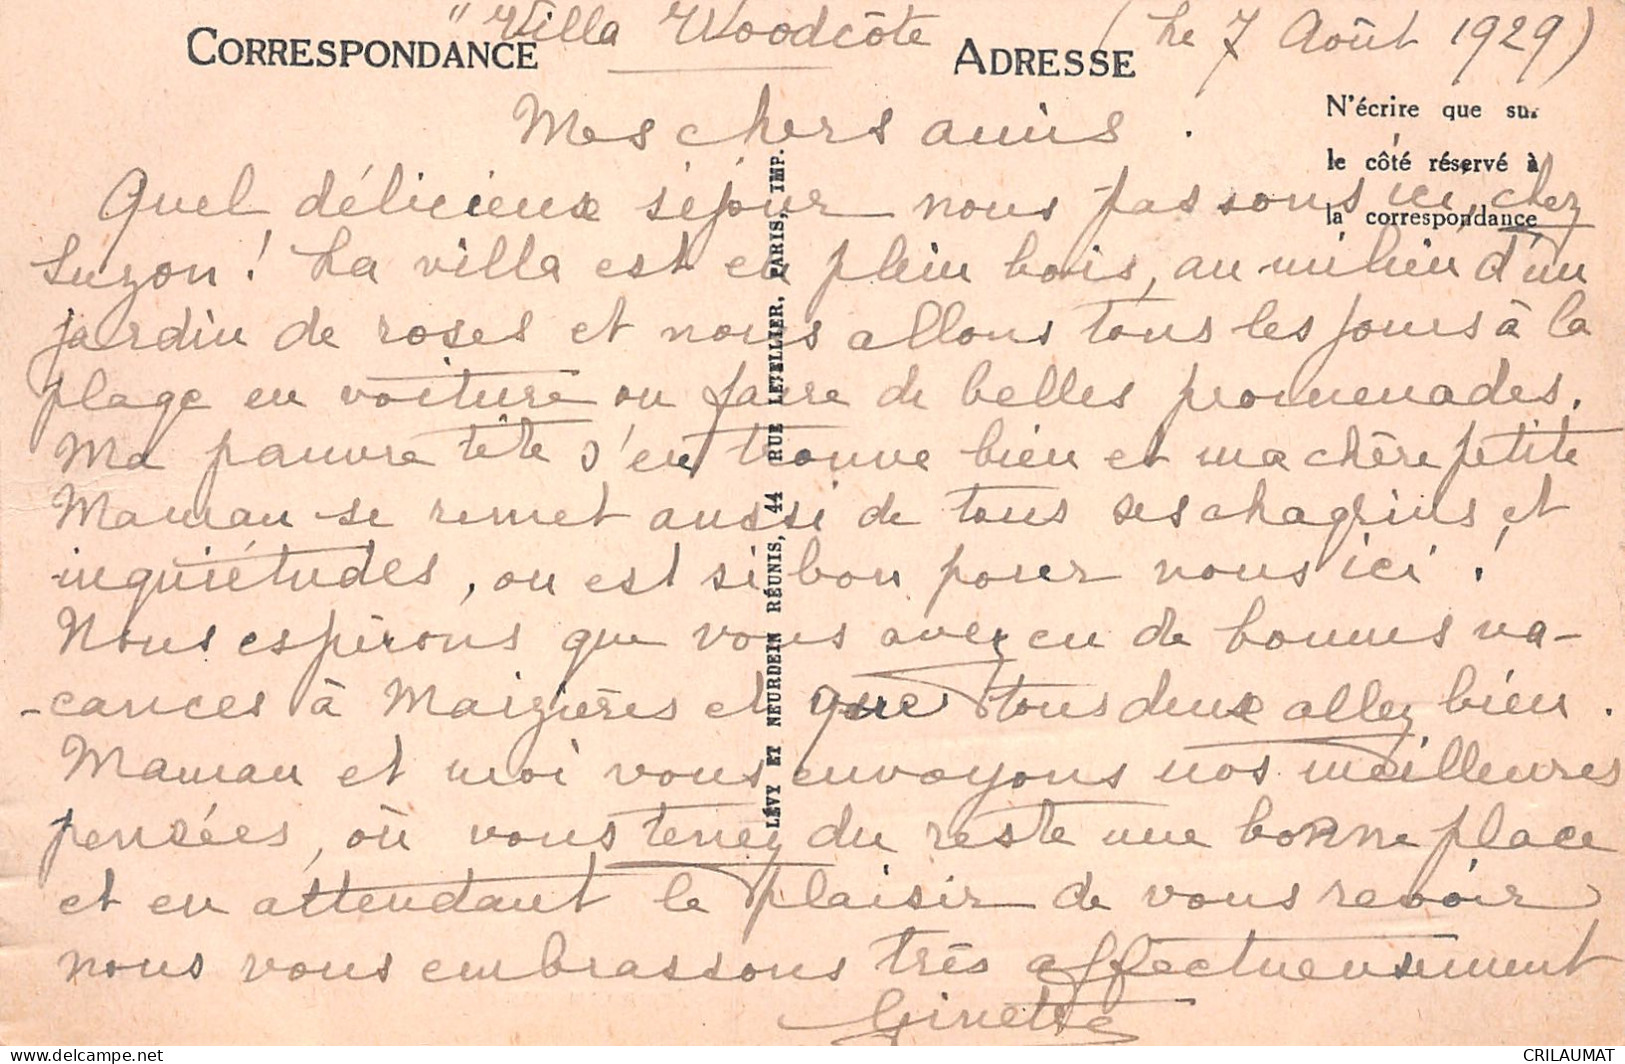 "Villa Woodcôte (Le 7 Août 1929)
CORRESPONDANCE ADRESSE
N'écrire que sur
le côté réservé à
la correspondance
Mes chers amis.
Quel délicieux séjour nous passons ici, chez
Suzon! La villa est en plein bois, au milieu d'un
jardin de roses et nous allons tous les jours à la
plage en voiture ou faire de belles promenades.
Ma pauvre tête s'en trouve bien et ma chère petite
Maman se remet aussi de tous ses chagrins et
inquiétudes, on est si bon pour nous ici!
Nous espérons que vous avez eu de bonnes va-
-cances à Maizières et que tous deux allez bien.
Maman et moi vous envoyons nos meilleures
pensées, où vous tenez du reste une bonne place
et en attendant le plaisir de vous revoir
nous vous embrassons très affectueusement
Ginette
LÉVY ET NEURDEIN RÉUNIS, 44 RUE LETELLIER, PARIS, IMP.
CRILAUMAT